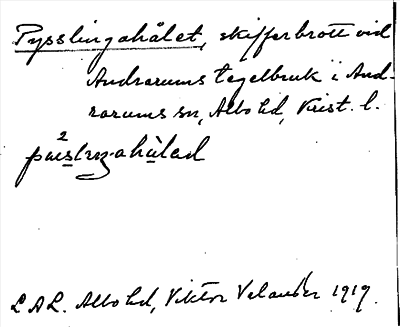 Pysslingahålet, skifferbrott vid
Andrarums tegelbruk i And-
rarums sn, Albo hd, Krist. l.
L A L. Albo hd, Viktor Velander 1919.